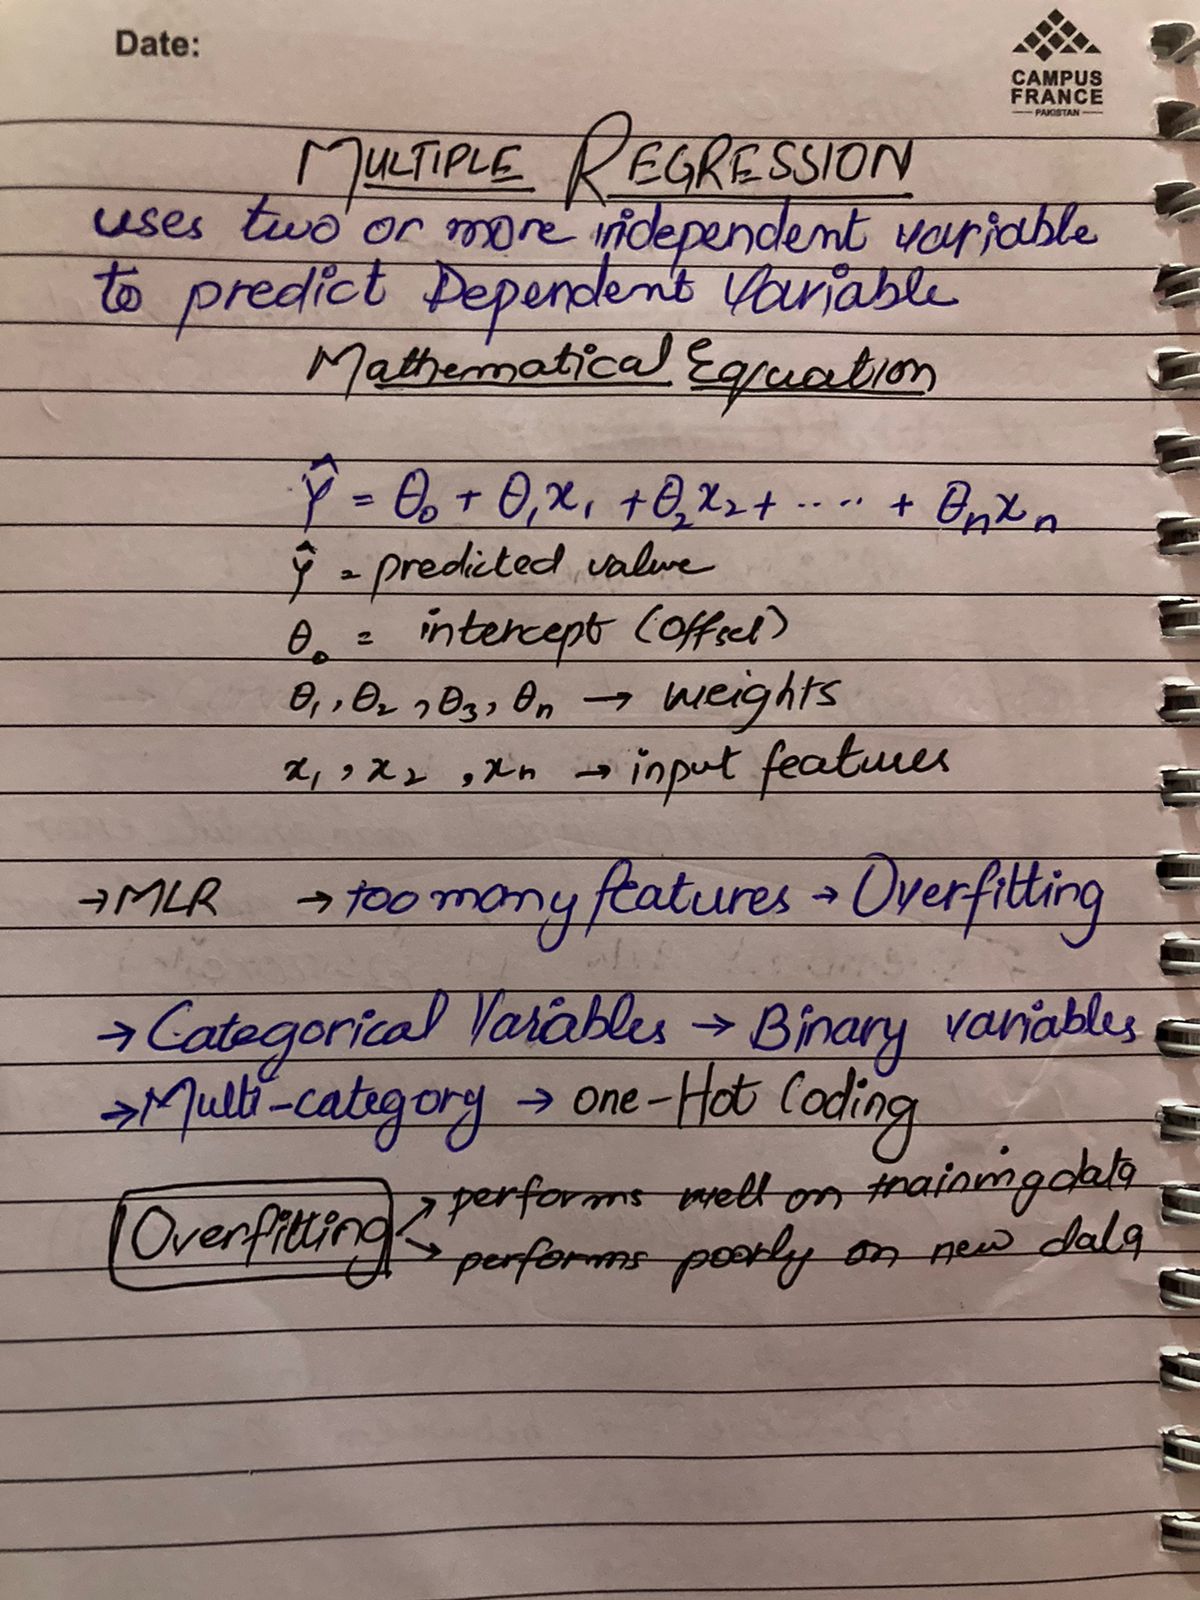 Date:
CAMPUS
FRANCE
PAKISTAN
MULTIPLE REGRESSION
uses two or more independent variable
to predict Dependent Variable
Mathematical Equation
Ŷ = θ₀ + θ₁x₁ + θ₂x₂ + ..... + θₙxₙ
Ŷ = predicted value
θ₀ = intercept (Offset)
θ₁, θ₂, θ₃, θₙ → weights
x₁, x₂, xₙ → input features
→ MLR → too many features → Overfitting
→ Categorical Variables → Binary variables
→ Multi-category → one-Hot Coding
Overfitting → performs well on training data
→ performs poorly on new data